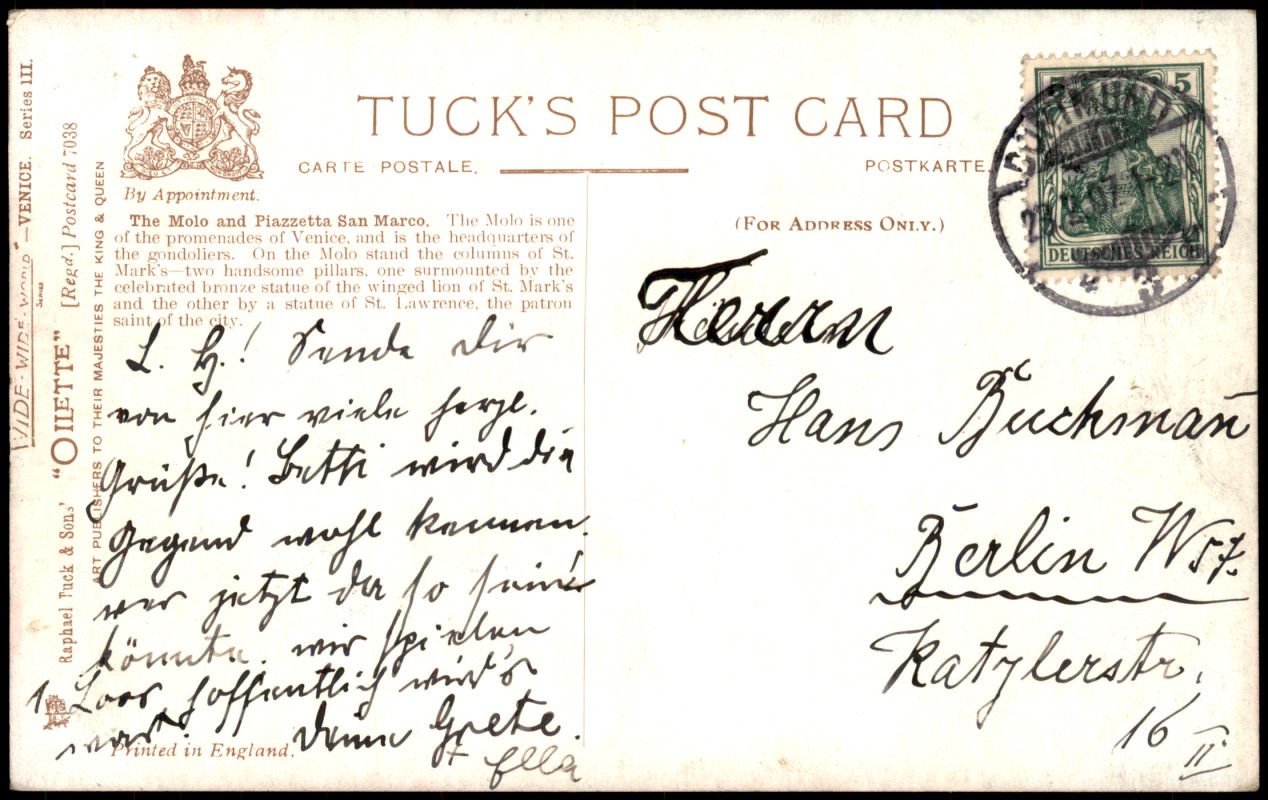 TUCK'S POST CARD
CARTE POSTALE.
POSTKARTE.
By Appointment.
(FOR ADDRESS ONLY.)
The Molo and Piazzetta San Marco. The Molo is one
of the promenades of Venice, and is the headquarters of
the gondoliers. On the Molo stand the columns of St.
Mark's—two handsome pillars, one surmounted by the
celebrated bronze statue of the winged lion of St. Mark's
and the other by a statue of St. Lawrence, the patron
saint of the city.
WIDE-WIDE-WORLD SERIES —VENICE. Series III.
Raphael Tuck & Sons' "OILETTE" [Regd.] Postcard 7038
ART PUBLISHERS TO THEIR MAJESTIES THE KING & QUEEN
L. H.! Sende Dir
von hier viele herzl.
Grüße! Betti wird die
Gegend wohl kennen.
wer jetzt da so sein
könnte. wir spielen
1. Loos, hoffentlich wird's
was! Deine Grete
+ Ella
Printed in England.
5 5
DEUTSCHES REICH
DORTMUND
07. 1-2N
Herrn
Hans Buckmañ
Berlin W57.
Katzlerstr.
16 II